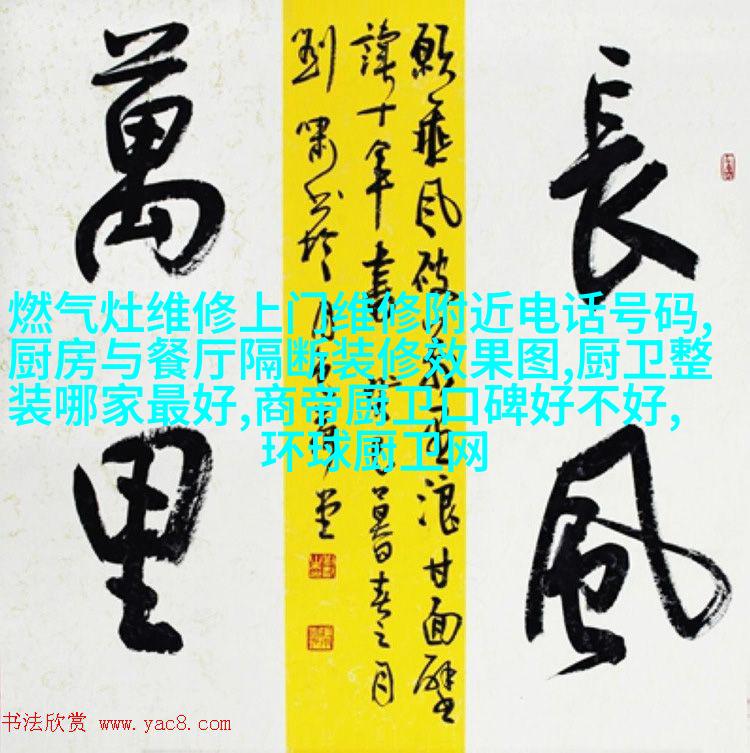 長風
萬里
願乘風破浪甘面壁
讀十年書暮春之月
燃气灶维修上门维修附近电话号码,
厨房与餐厅隔断装修效果图,厨卫整
装哪家最好,商帝厨卫口碑好不好,
环球厨卫网
书法欣赏 www.yac8.com